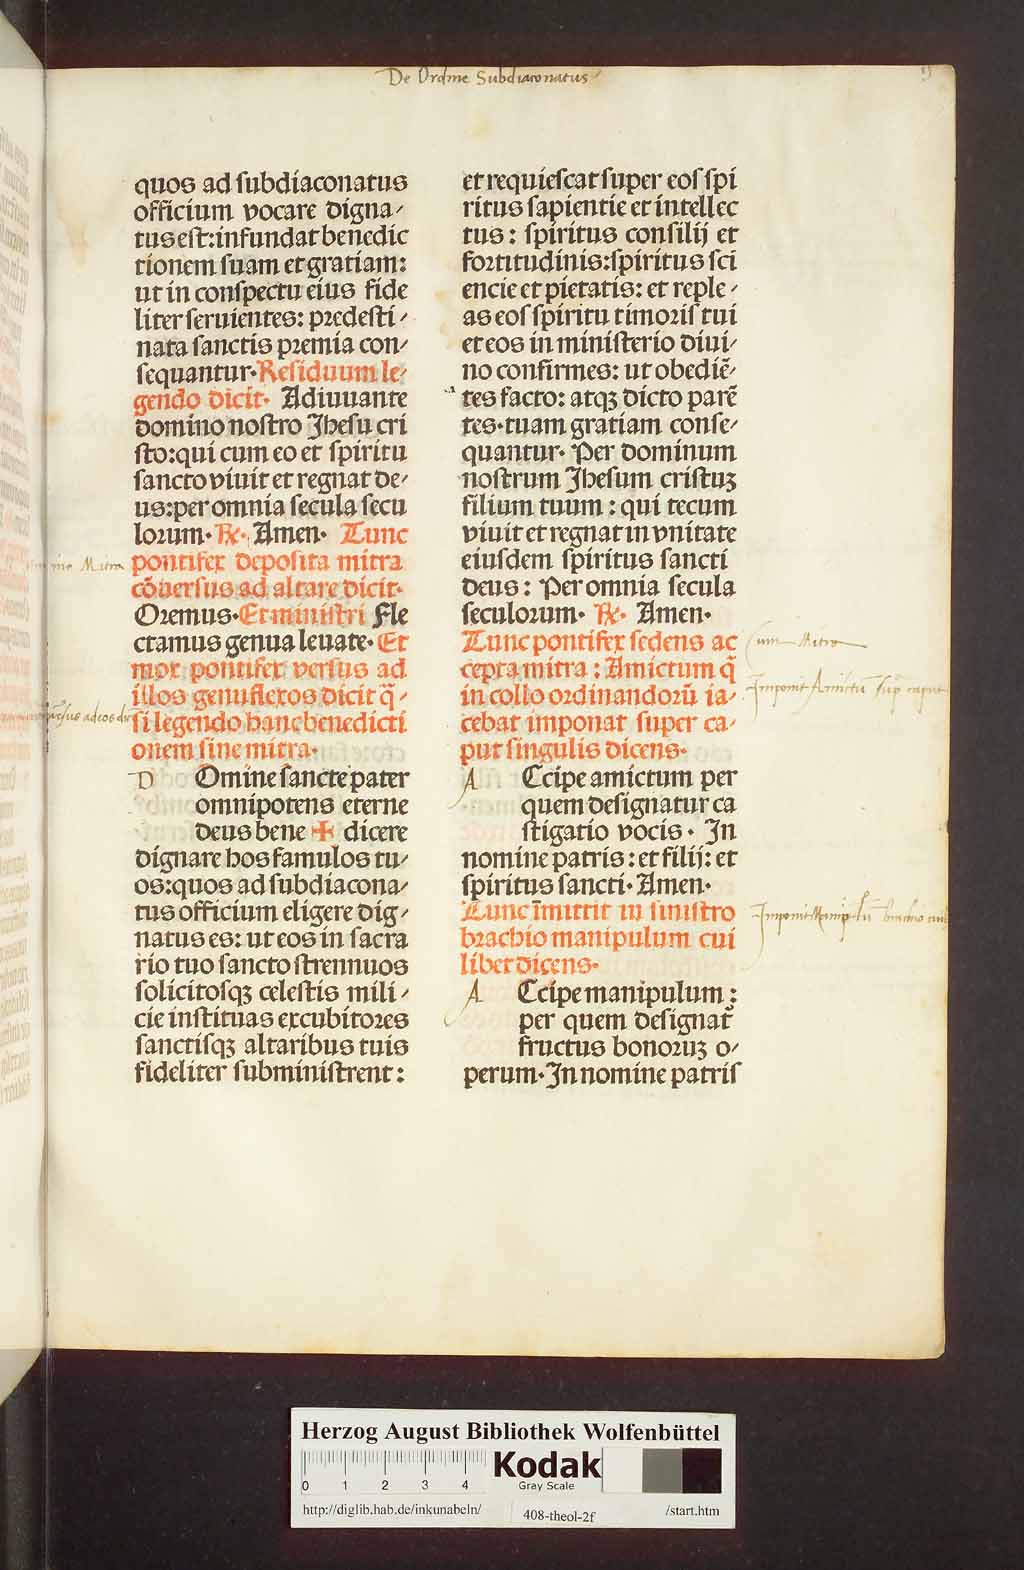 De Ordine Subdiaconatus
quos ad ſubdiaconatus
officium vocare digna⸗
tus eſt: infundat benedic
tionem ſuam et gratiam:
ut in conſpectu eius fide
liter ſeruientes: predeſti⸗
nata ſanctis premia con⸗
ſequantur. Reſiduum le⸗
gendo dicit. Adiuuante
domino noſtro Jheſu cri
ſto: qui cum eo et ſpiritu
ſancto viuit et regnat de⸗
us: per omnia ſecula ſecu
lorum. ℞. Amen. Tunc
pontifex depoſita mitra
cōuerſus ad altare dicit.
Oremus. Et miniſtri Fle
ctamus genua leuate. Et
mox pontifex verſus ad
illos genuflexos dicit q̄⸗
ſi legendo hanc benedicti
onem ſine mitra.
D Omine ſancte pater
omnipotens eterne
deus bene ✠ dicere
dignare hos famulos tu⸗
os: quos ad ſubdiacona⸗
tus officium eligere dig⸗
natus es: ut eos in ſacra
rio tuo ſancto ſtrennuos
ſolicitoſqꝫ celeſtis mili⸗
cie inſtituas excubitores
ſanctiſqꝫ altaribus tuis
fideliter ſubminiſtrent:
Mitra
adeos
et requieſcat ſuper eoſ ſpi
ritus ſapientie et intellec
tus: ſpiritus conſilij et
fortitudinis: ſpiritus ſci
encie et pietatis: et reple⸗
as eoſ ſpiritu timoriſ tui
et eos in miniſterio diui⸗
no confirmes: ut obediē⸗
tes facto: atqꝫ dicto parē
tes. tuam gratiam conſe⸗
quantur. Per dominum
noſtrum Jheſum criſtuꝫ
filium tuum: qui tecum
viuit et regnat in vnitate
eiuſdem ſpiritus ſancti
deus: Per omnia ſecula
ſeculorum. ℞. Amen.
Tunc pontifex ſedens ac
cepta mitra: Amictum q̄
in collo ordinandorū ia⸗
cebat imponat ſuper ca⸗
put ſingulis dicens.
A Ccipe amictum per
quem deſignatur ca
ſtigatio vocis. In
nomine patris: et filij: et
ſpiritus ſancti. Amen.
Tunc īmittit in ſiniſtro
brachio manipulum cui
libet dicens.
A Ccipe manipulum:
per quem deſignat᷑
fructus bonoruꝫ o⸗
perum. In nomine patriſ
Cum Mitra
Imponit Amictū sup̄ caput
Herzog August Bibliothek Wolfenbüttel
0 1 2 3 4
Kodak
Gray Scale
http://diglib.hab.de/inkunabeln/
408-theol-2f
/start.htm